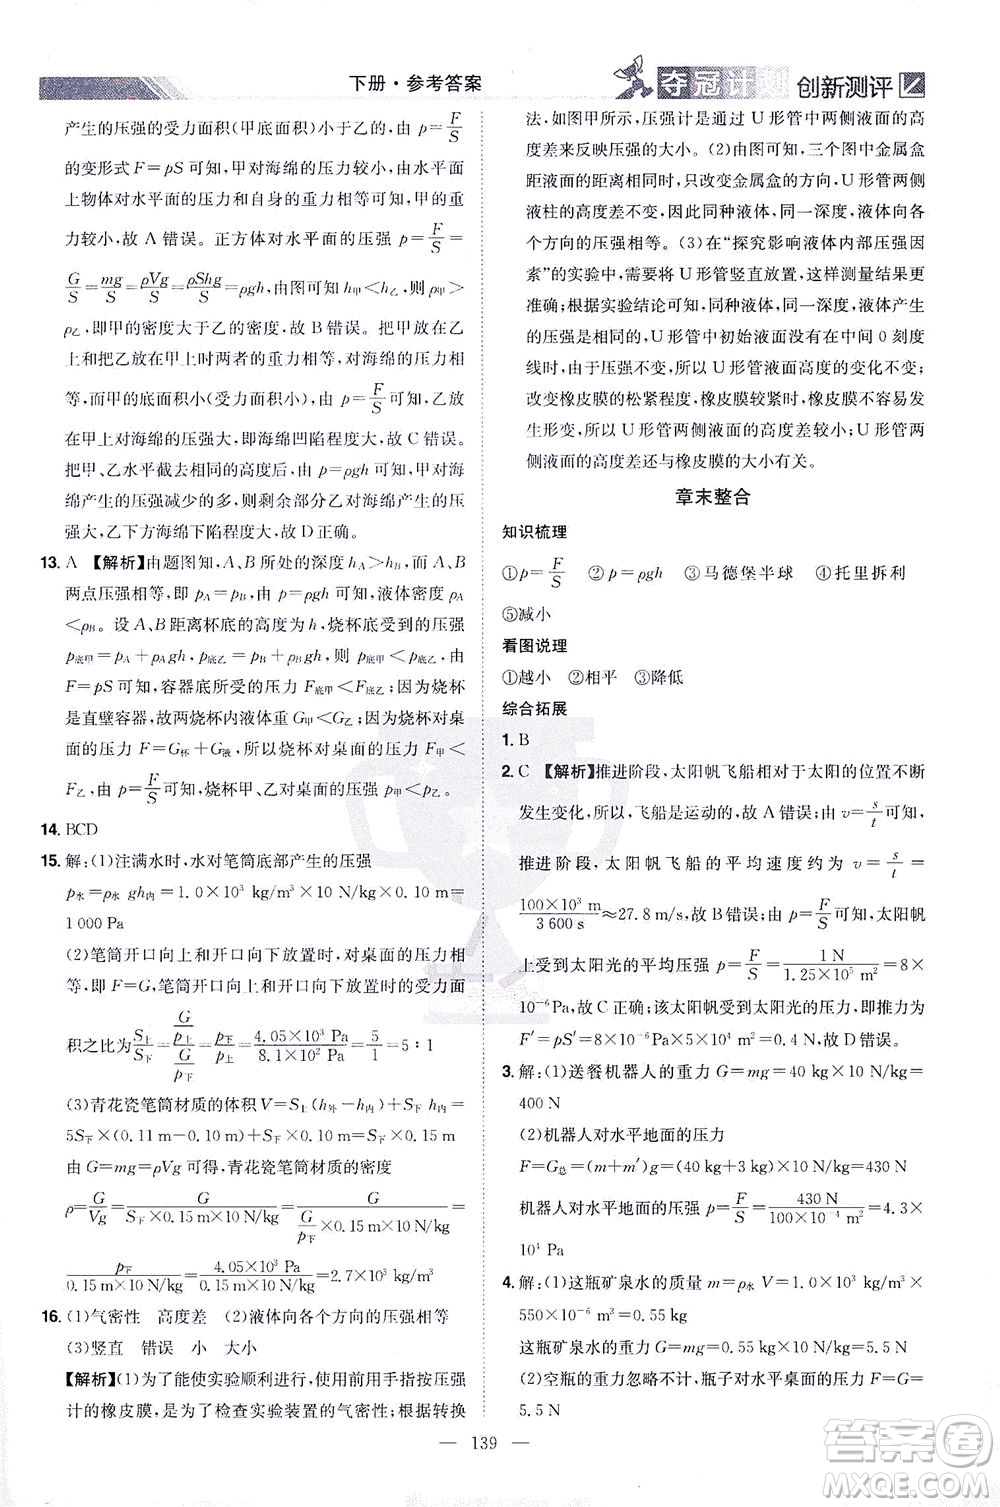 下册·参考答案
夺冠计划 创新测评
产生的压强的受力面积(甲底面积)小于乙的，由 p=F/S
的变形式 F=pS 可知，甲对海绵的压力较小，由水平面
上物体对水平面的压力和自身的重力相等可知，甲的重
力较小，故 A 错误。正方体对水平面的压强 p=F/S=
G/S=mg/S=ρVg/S=ρShg/S=ρgh，由图可知 h甲<h乙，则 ρ甲>
ρ乙，即甲的密度大于乙的密度，故 B 错误。把甲放在乙
上和把乙放在甲上时两者的重力相等，对海绵的压力相
等，而甲的底面积小(受力面积小)，由 p=F/S 可知，乙放
在甲上对海绵的压强大，海绵凹陷程度大，故 C 错误。
把甲、乙水平截去相同的高度后，由 p=ρgh 可知，甲对海
绵产生的压强减少的多，则剩余部分乙对海绵产生的压
强大，乙下方海绵下陷程度大，故 D 正确。
13. A 【解析】由题图知，A、B 所处的深度 hA>hB，而 A、B
两点压强相等，即 pA=pB，由 p=ρgh 可知，液体密度 ρA
<ρB。设 A、B 距离杯底的高度为 h，烧杯底受到的压强
p底甲=pA+ρAgh，p底乙=pB+ρBgh，则 p底甲<p底乙，由
F=pS 可知，容器底所受的压力 F底甲<F底乙，因为烧杯
是直壁容器，故两烧杯内液体重 G甲<G乙；因为烧杯对桌
面的压力 F=G杯+G液，所以烧杯对桌面的压力 F甲<
F乙，由 p=F/S 可知，烧杯对桌面的压强 p甲<p乙。
14. BCD
15. 解：(1)注满水时，水对笔筒底部产生的压强
p水=ρ水gh内=1.0×10³ kg/m³×10 N/kg×0.10 m=
1 000 Pa
(2)笔筒开口向上和开口向下放置时，对桌面的压力相
等，即 F=G，笔筒开口向上和开口向下时，其受力面
积之比为 S上/S下=(G/p上)/(G/p下)=p下/p上=4.05×10³ Pa/8.1×10² Pa=5/1=5∶1
(3)青花瓷笔筒材质的体积 V=S上(h外-h内)+S下h内=
5S下×(0.11 m-0.10 m)+S下×0.10 m=S下×0.15 m
由 G=mg=ρVg 可得，青花瓷笔筒材质的密度
ρ=G/Vg=G/(S下×0.15 m×10 N/kg)=G/(G/p下×0.15 m×10 N/kg)=
p下/(0.15 m×10 N/kg)=4.05×10³ Pa/(0.15 m×10 N/kg)=2.7×10³ kg/m³
16. (1)气密性 高度差 (2)液体向各个方向的压强相等
(3)竖直 错误 小 大小
【解析】(1)为了能使实验顺利进行，使用前用手指按压强
计的橡皮膜，是为了检查实验装置的气密性；根据转换
法，如图甲所示，压强计是通过 U 形管中两侧液面的高
度差来反映压强的大小。(2)由图可知，三个图中金属盒
距液面的距离相同时，只改变金属盒的方向，U 形管两侧
液柱的高度差不变，因此同种液体，同一深度，液体向各
个方向的压强相等。(3)在“探究影响液体内部压强因
素”的实验中，需要将 U 形管竖直放置，这样测量结果更
准确；根据实验结论可知，同种液体，同一深度，液体产生
的压强是不变的，U 形管中初始液面处在中间 0 刻度
线时，由于压强不变，所以 U 形管液面高度的变化不变；
改变橡皮膜的松紧程度，橡皮膜较紧时，橡皮膜不容易发
生形变，所以 U 形管两侧液面的高度差较小；U 形管两
侧液面的高度差还与橡皮膜的大小有关。
章末整合
知识梳理
①p=F/S ②p=ρgh ③马德堡半球 ④托里拆利
⑤减小
看图说理
①越小 ②相平 ③降低
综合拓展
1. B
2. C 【解析】推进阶段，太阳帆飞船相对于太阳的位置不断
发生变化，所以，飞船是运动的，故 A 错误；由 v=s/t 可知，
推进阶段，太阳帆飞船的平均速度约为 v=s/t=
100×10³ m/3 600 s≈27.8 m/s，故 B 错误；由 p=F/S 可知，太阳帆
上受到太阳光的平均压强 p=F/S=1 N/1.25×10⁵ m²=8×
10⁻⁶Pa，故 C 正确；该太阳帆受到太阳光的压力，即推力为
F′=pS′=8×10⁻⁶Pa×5×10⁴ m²=0.4 N，故 D 错误。
3. 解：(1)送餐机器人的重力 G=mg=40 kg×10 N/kg=
400 N
(2)机器人对水平地面的压力
F=G总=(m+m′)g=(40 kg+3 kg)×10 N/kg=430 N
机器人对水平地面的压强 p=F/S=430 N/100×10⁻⁴ m²=4.3×
10⁴ Pa
4. 解：(1)这瓶矿泉水的质量 m=ρ水V=1×10³ kg/m³×
550×10⁻⁶ m³=0.55 kg
这瓶矿泉水的重力 G=mg=0.55 kg×10 N/kg=5.5 N
(2)空瓶的重力忽略不计，瓶子对水平桌面的压力 F=G=
5.5 N
— 139 —
答案圈
MXQE.COM